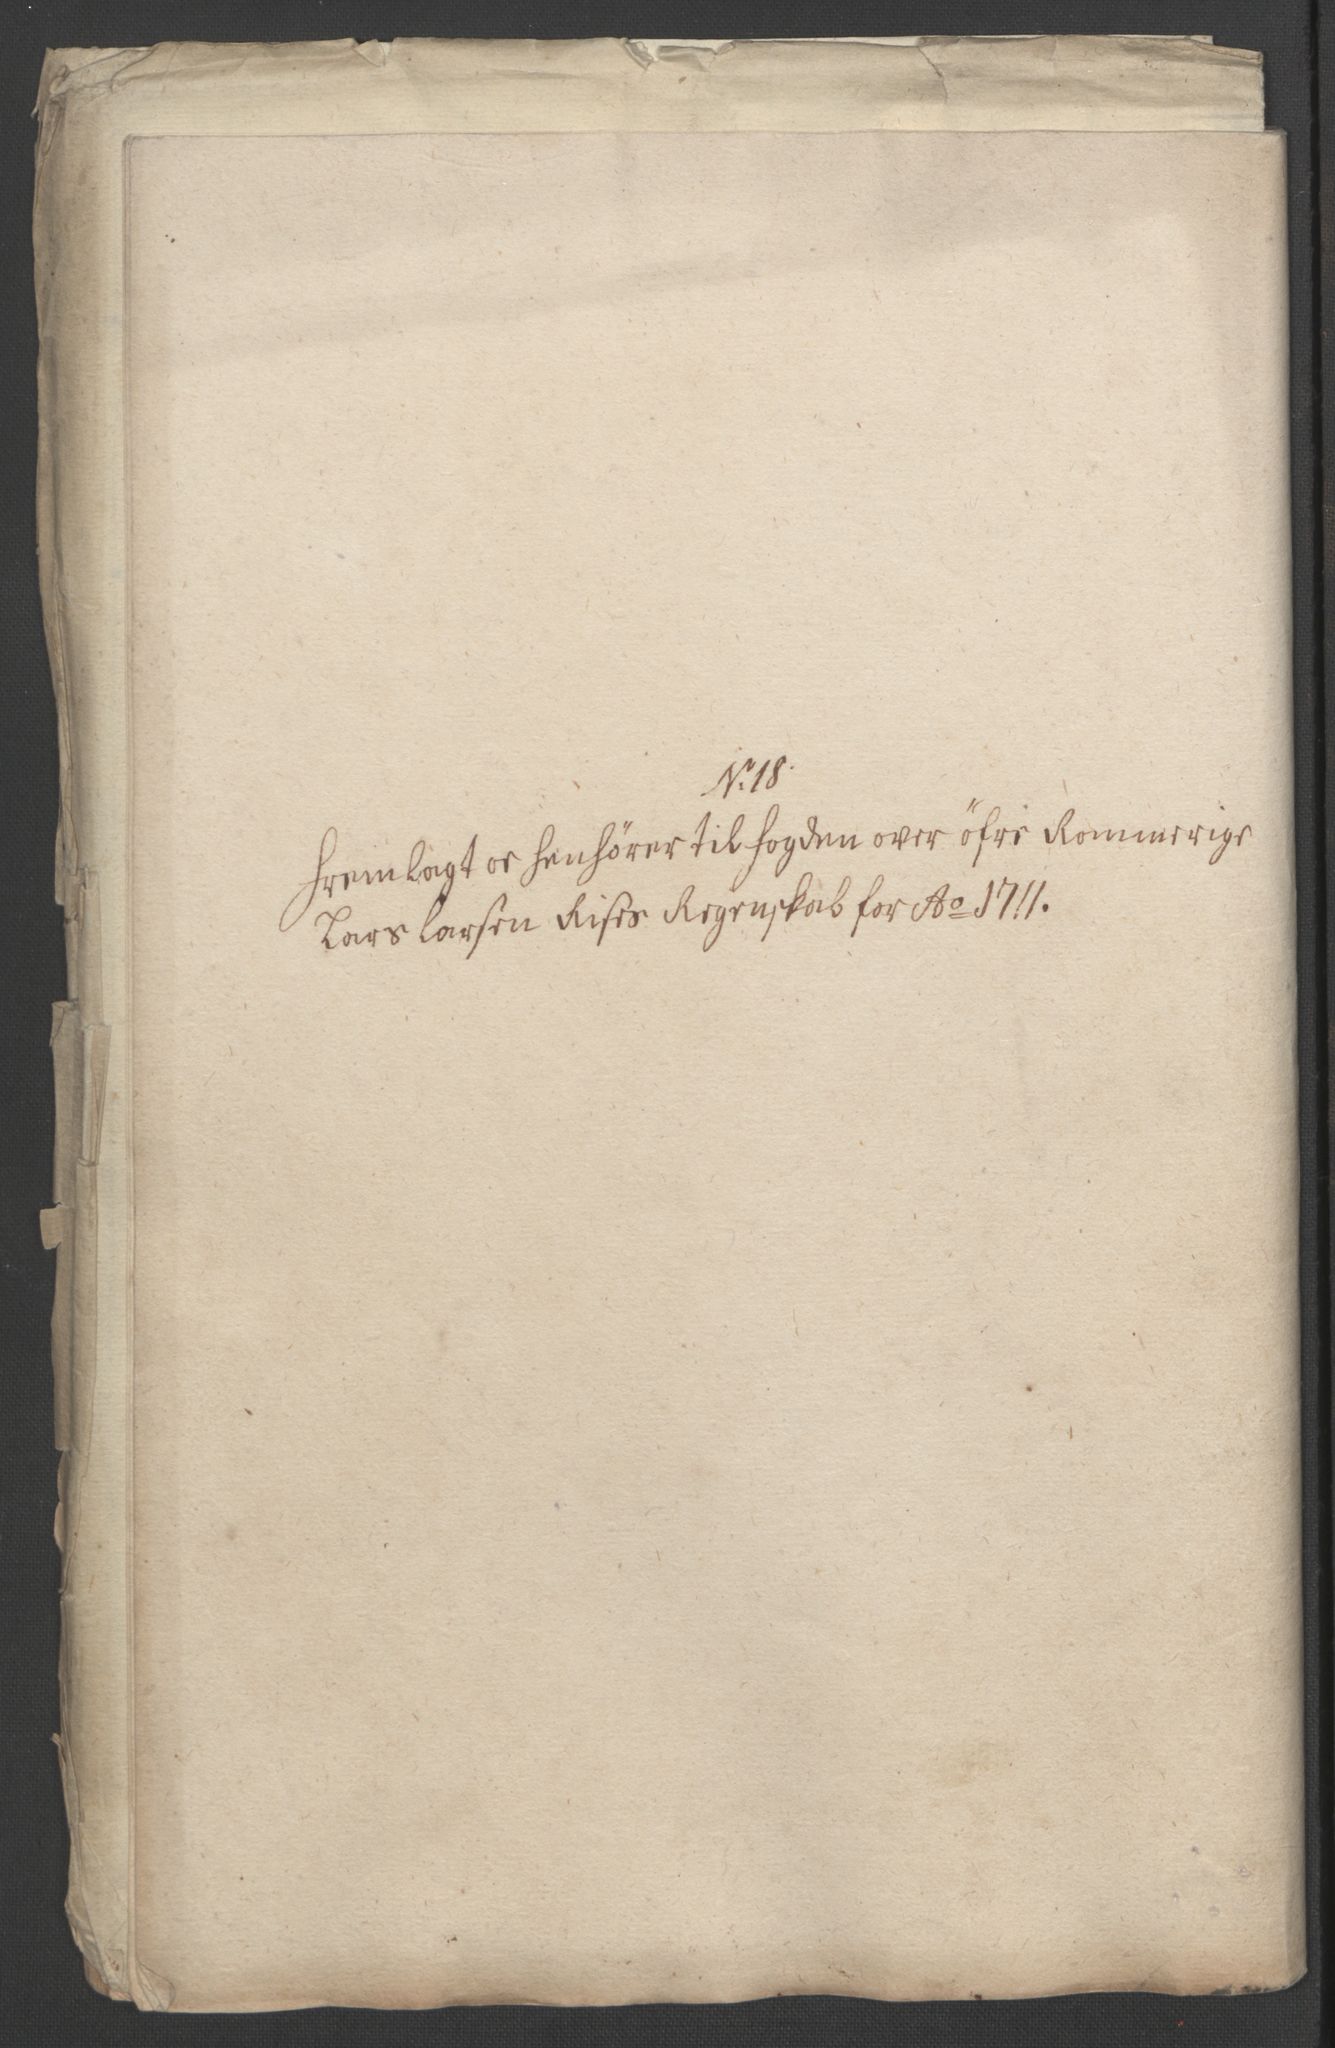 No 18.
Fremlagt oc henhører til fogden over Öfre Rommerige
Lars Larsen Rises Regenskab for Ao 1711.